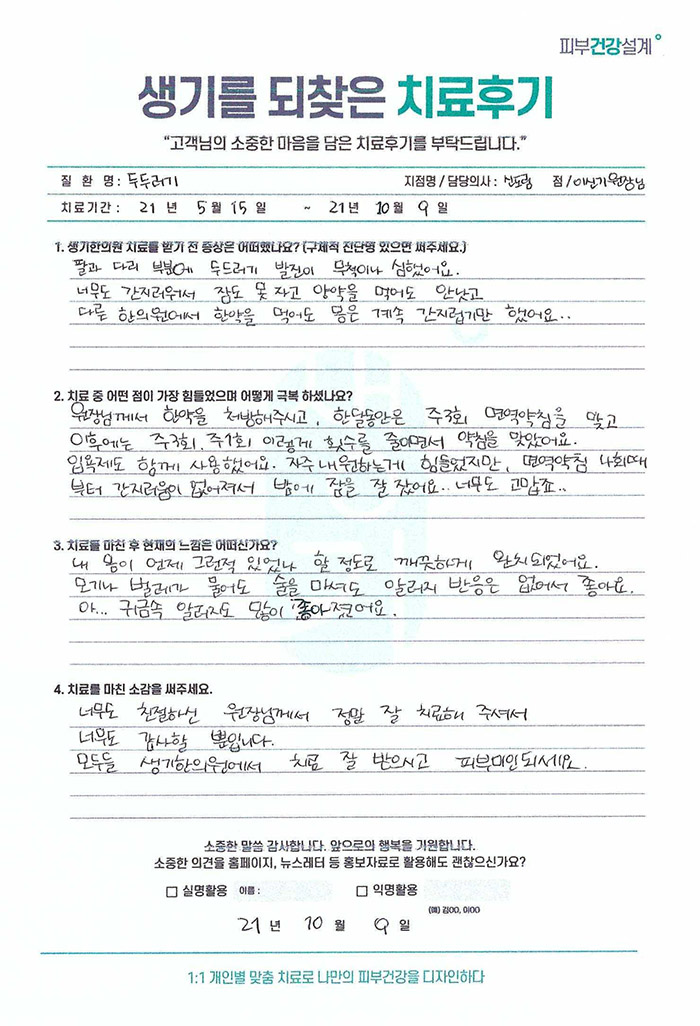 피부건강설계
생기를 되찾은 치료후기
“고객님의 소중한 마음을 담은 치료후기를 부탁드립니다.”
질 환 명 : 두두러기 지점명 / 담당의사 : 신프랑 점 / 이신기원장님
치료기간 : 21 년 5 월 15 일 ~ 21 년 10 월 9 일
1. 생기한의원 치료를 받기 전 증상은 어떠했나요? (구체적 진단명 있으면 써주세요.)
팔과 다리 부분에 두드러기 발진이 무척이나 심했어요.
너무도 간지러워서 잠도 못 자고 양약을 먹어도 안낫고
다른 한의원에서 한약을 먹어도 몸은 계속 간지럽기만 했어요..
2. 치료 중 어떤 점이 가장 힘들었으며 어떻게 극복 하셨나요?
원장님께서 한약을 처방해주시고, 한달동안은 주3회 면역약침을 맞고
이후에는 주2회, 주1회 이렇게 횟수를 줄이면서 약침을 맞았어요.
입욕제도 함께 사용했어요. 자주 내원하는게 힘들었지만, 면역약침 4회때
부터 간지러움이 없어져서 밤에 잠을 잘 잤어요.. 너무도 고맙죠..
3. 치료를 마친 후 현재의 느낌은 어떠신가요?
내 몸이 언제 그런적 있었나 할 정도로 깨끗하게 완치되었어요.
모기나 벌레가 물어도 술을 마셔도 알러지 반응은 없어서 좋아요.
아... 귀금속 알러지도 많이 좋아졌어요.
4. 치료를 마친 소감을 써주세요.
너무도 친절하신 원장님께서 정말 잘 치료해 주셔서
너무도 감사할 뿐입니다.
모두들 생기한의원에서 치료 잘 받으시고 피부미인되세요.
소중한 말씀 감사합니다. 앞으로의 행복을 기원합니다.
소중한 의견을 홈페이지, 뉴스레터 등 홍보자료로 활용해도 괜찮으신가요?
실명활용 이름 : 익명활용
(예) 김OO, 이OO
21 년 10 월 9 일
1:1 개인별 맞춤 치료로 나만의 피부건강을 디자인하다